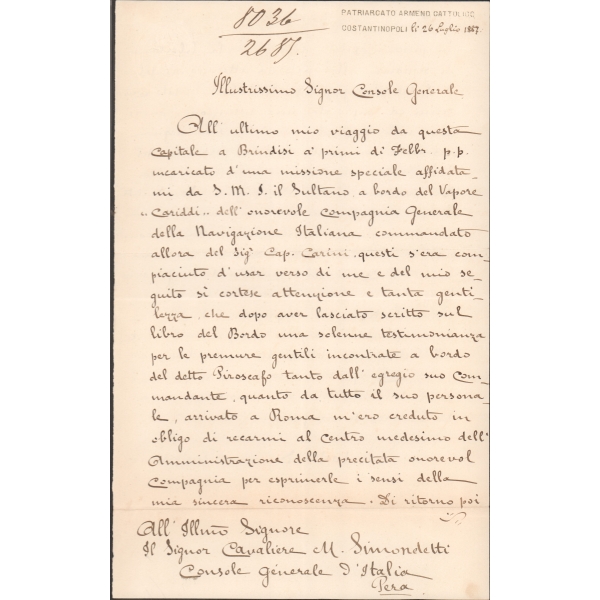 8036
2685.
PATRIARCATO ARMENO CATTOLICO
COSTANTINOPOLI li 26 Luglio 1887.
Illustrissimo Signor Console Generale
All' ultimo mio viaggio da questa
Capitale a Brindisi a' primi di Febbr. p.p.
incaricato d'una missione speciale affidata-
mi da S. M. I. il Sultano, a bordo del Vapore
„Cariddi„ dell' onorevole Compagnia Generale
della Navigazione Italiana commandato
allora del Sigr Cap. Carini, questi s'era com
piaciuto d'usar verso di me e del mio se-
guito sì cortese attenzione e tanta genti-
lezza, che dopo aver lasciato scritto sul
libro del Bordo una solenne testimonianza
per le premure gentili incontrate a bordo
del detto Piroscafo tanto dall' egregio suo Com-
mandante, quanto da tutto il suo persona-
le, arrivato a Roma m'ero creduto in
obligo di recarmi al Centro medesimo dell'
Amministrazione della precitata onorevol
Compagnia per esprimerle i sensi della
mia sincera riconoscenza. Di ritorno poi
All' Illmo Signore
Il Signor Cavaliere M. Simondetti
Console Generale d'Italia
Pera